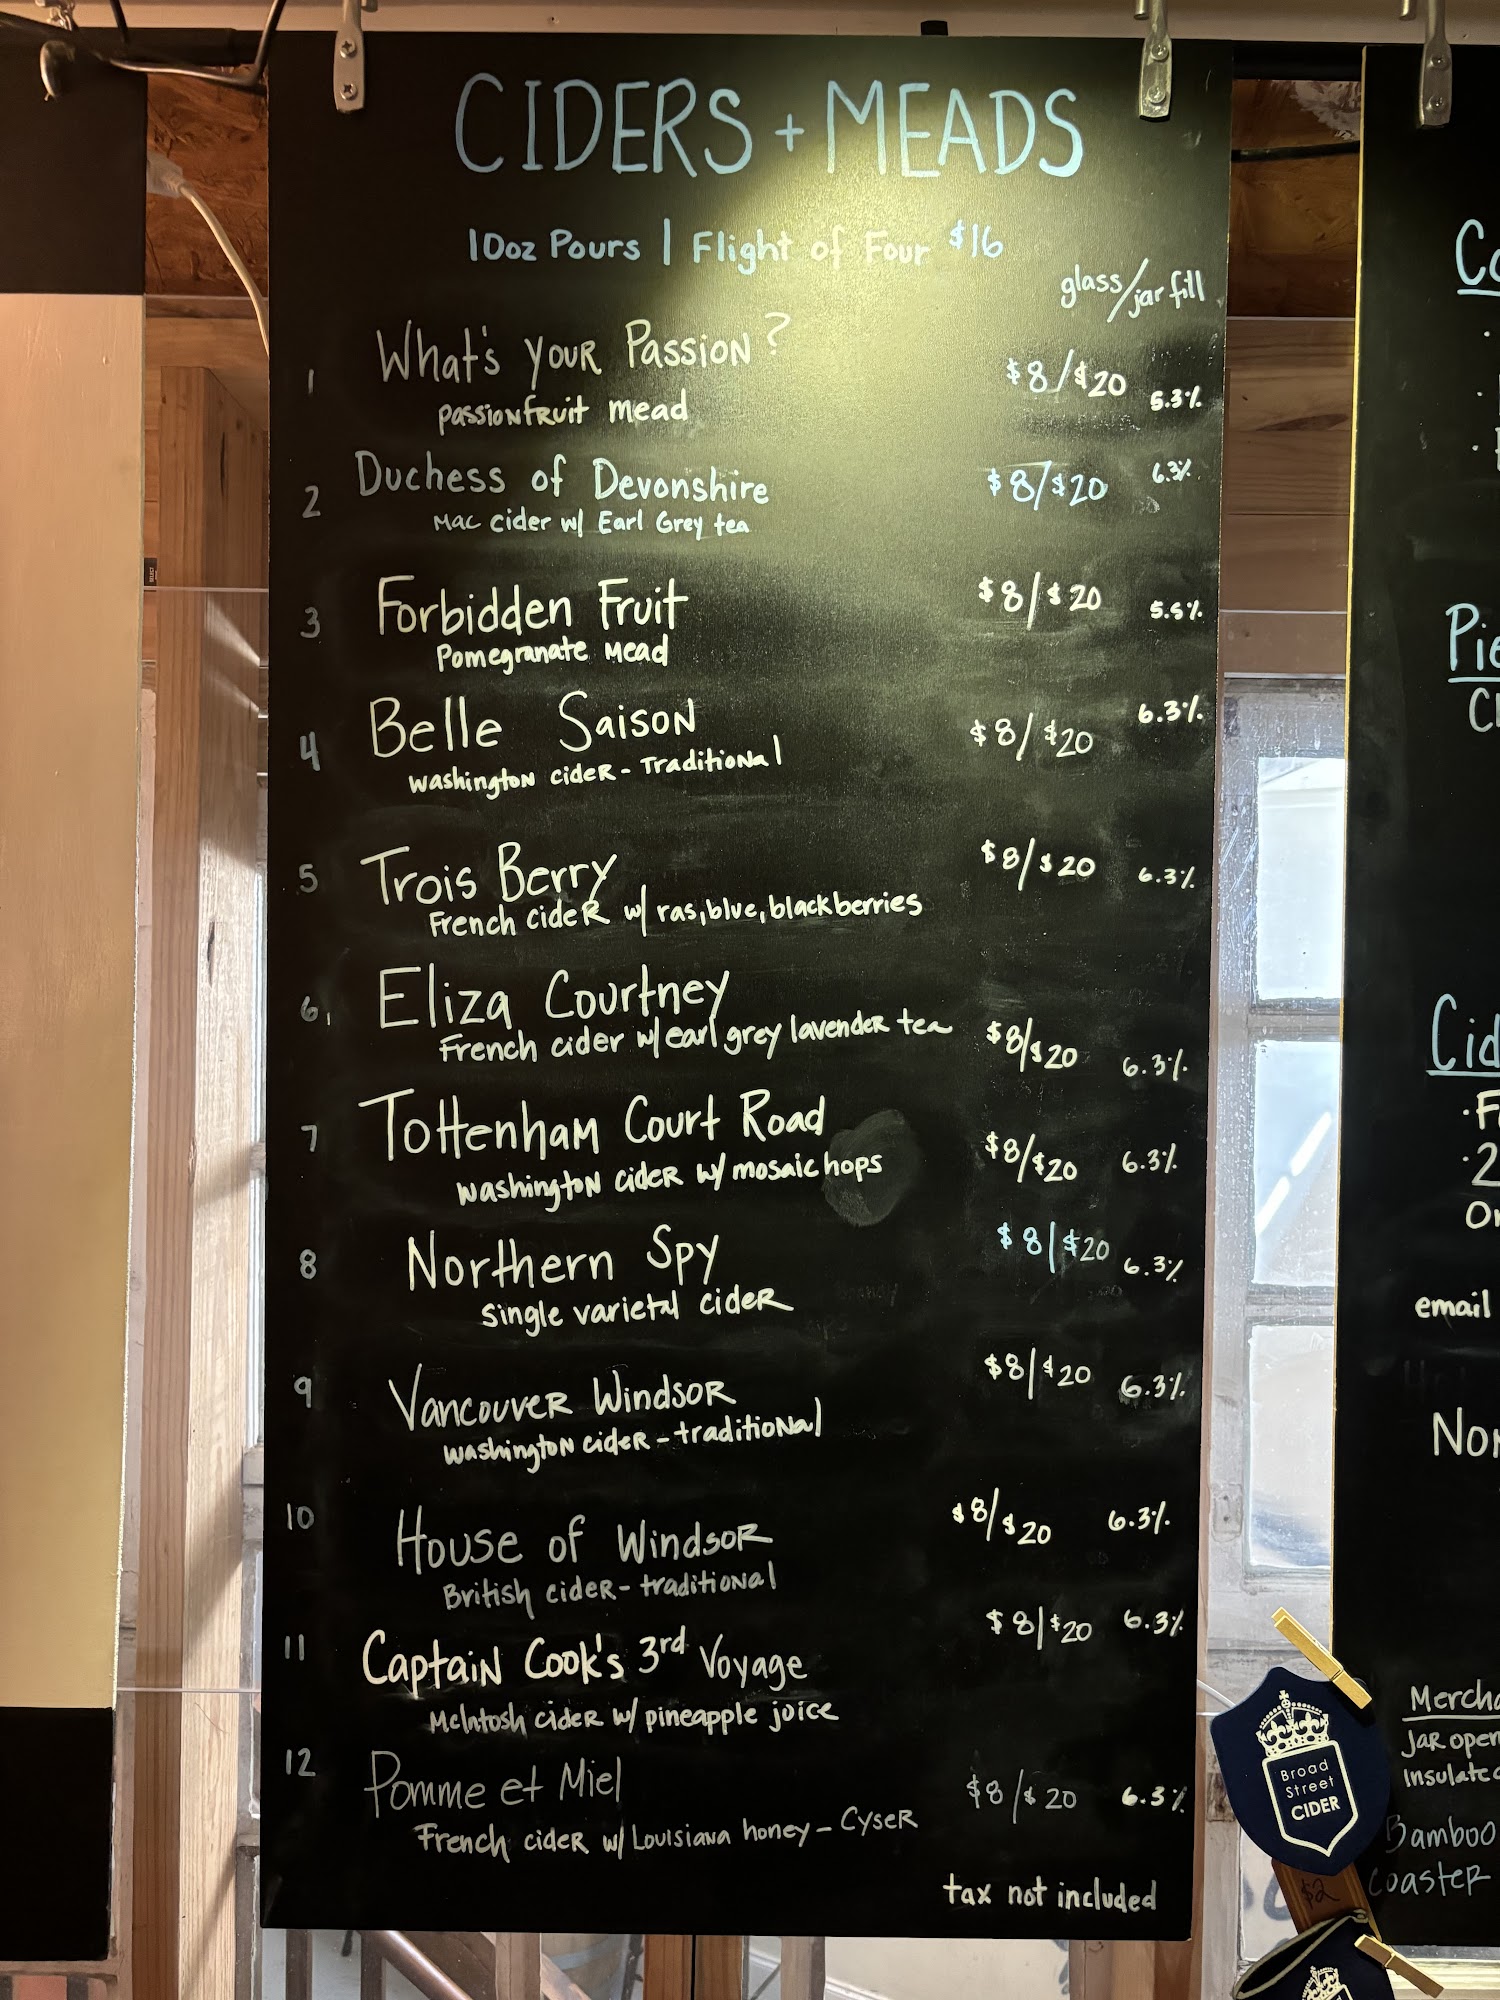 CIDERS + MEADS
10oz Pours | Flight of Four $16
glass/jar fill
1 What's your Passion? $8/$20 5.3%
passionfruit mead
2 Duchess of Devonshire $8/$20 6.3%
Mac cider w/ Earl Grey tea
3 Forbidden Fruit $8/$20 5.5%
Pomegranate Mead
4 Belle Saison $8/$20 6.3%
Washington cider - Traditional
5 Trois Berry $8/$20 6.3%
French cider w/ ras, blue, blackberries
6 Eliza Courtney $8/$20 6.3%
French cider w/ earl grey lavender tea
7 Tottenham Court Road $8/$20 6.3%
Washington cider w/ mosaic hops
8 Northern Spy $8/$20 6.3%
Single varietal cider
9 Vancouver Windsor $8/$20 6.3%
Washington cider - traditional
10 House of Windsor $8/$20 6.3%
British cider - traditional
11 Captain Cook's 3rd Voyage $8/$20 6.3%
McIntosh cider w/ pineapple juice
12 Pomme et Miel $8/$20 6.3%
French cider w/ Louisiana honey - Cyser
tax not included
email
Jar open
Bamboo
coaster
Broad
Street
CIDER
$2